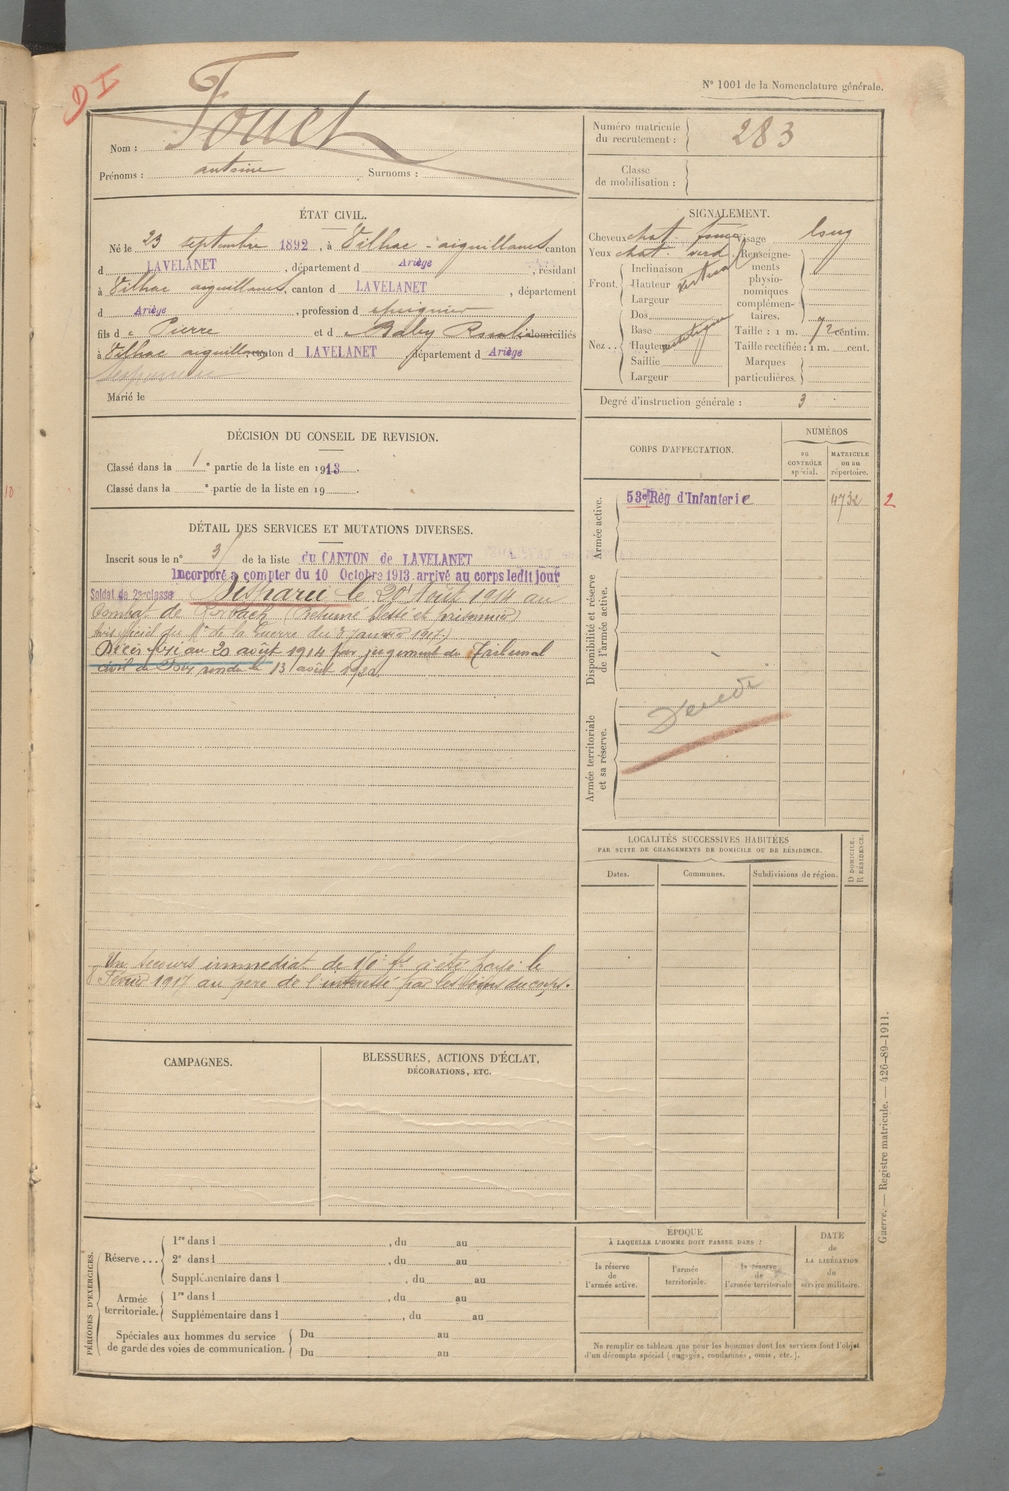 D I
N° 1001 de la Nomenclature générale.
Nom : Fouet
Prénoms : antoine Surnoms :
Numéro matricule du recrutement : 283
Classe de mobilisation :
ÉTAT CIVIL.
Né le 23 septembre 1892, à Vilhac-aiguillanes canton
d LAVELANET, département d Ariège, résidant
à Vilhac aiguillanes, canton d LAVELANET, département
d Ariège, profession d
fils d e Pierre et d e Rosalie domiciliés
à Vilhac aiguillanes canton d LAVELANET département d Ariège
Marié le
SIGNALEMENT.
Cheveux chat. foncé Visage long
Yeux chat. verd. Renseignements physionomiques complémentaires.
Front. Inclinaison
Hauteur vertical
Largeur
Nez.. Dos
Base
Hauteur
Saillie
Largeur
Taille : 1 m. 72 centim.
Taille rectifiée : 1 m. cent.
Marques particulières.
Degré d'instruction générale : 3
DÉCISION DU CONSEIL DE REVISION.
Classé dans la 1e partie de la liste en 1913.
Classé dans la e partie de la liste en 19 .
DÉTAIL DES SERVICES ET MUTATIONS DIVERSES.
Inscrit sous le n° 31 de la liste du CANTON de LAVELANET
Incorporé à compter du 10 Octobre 1913 arrivé au corps ledit jour
Soldat de 2e classe Disparu le 20 Août 1914 au
Combat de (Présumé blessé et prisonnier)
Avis officiel du Mre de la Guerre du 8 Janvier 1917.)
Décès fixé au 20 août 1914 par jugement du Tribunal
civil de Foix rendu le 13 août 1920.
Un secours immédiat de fs a été payé le
8 Février 1917 au père de l'intéressé par les soins du corps.
CORPS D'AFFECTATION.
NUMÉROS
AU CONTRÔLE spécial.
MATRICULE OU AU répertoire.
Armée active.
53e Rég d'Infanterie 4732
2
10
Disponibilité et réserve de l'armée active.
Armée territoriale et sa réserve.
Décédé
LOCALITÉS SUCCESSIVES HABITÉES
PAR SUITE DE CHANGEMENTS DE DOMICILE OU DE RÉSIDENCE.
Dates. Communes. Subdivisions de région.
D DOMICILE. R RÉSIDENCE.
CAMPAGNES.
BLESSURES, ACTIONS D'ÉCLAT,
DÉCORATIONS, ETC.
PÉRIODES D'EXERCICES.
Réserve... 1re dans l , du au
2e dans l , du au
Supplémentaire dans l , du au
Armée territoriale. 1re dans l , du au
Supplémentaire dans l , du au
Spéciales aux hommes du service de garde des voies de communication. Du au
Du au
ÉPOQUE
À LAQUELLE L'HOMME DOIT PASSER DANS :
la réserve de l'armée active.
l'armée territoriale.
la réserve de l'armée territoriale
DATE de LA LIBÉRATION du service militaire.
Ne remplir ce tableau que pour les hommes dont les services font l'objet
d'un décompte spécial (engagés, condamnés, omis, etc.).
Guerre. — Registre matricule. — 426-89-1911.